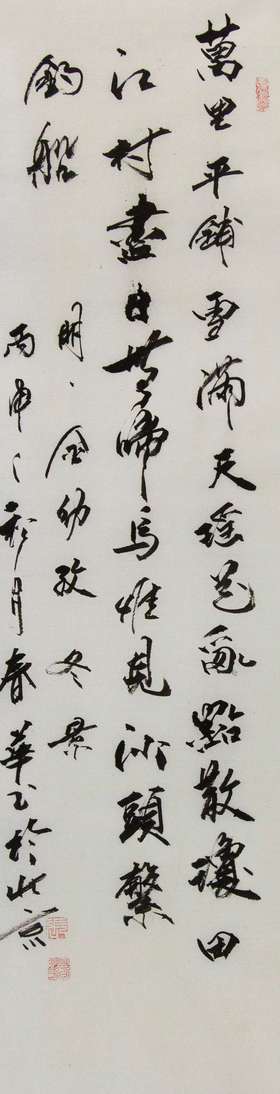 萬里平鋪雪滿天瑤花亂點散瓊田
江村盡日無啼鳥惟見沙頭繫
釣船
明、金幼孜冬景
丙申之新月春華書於北京